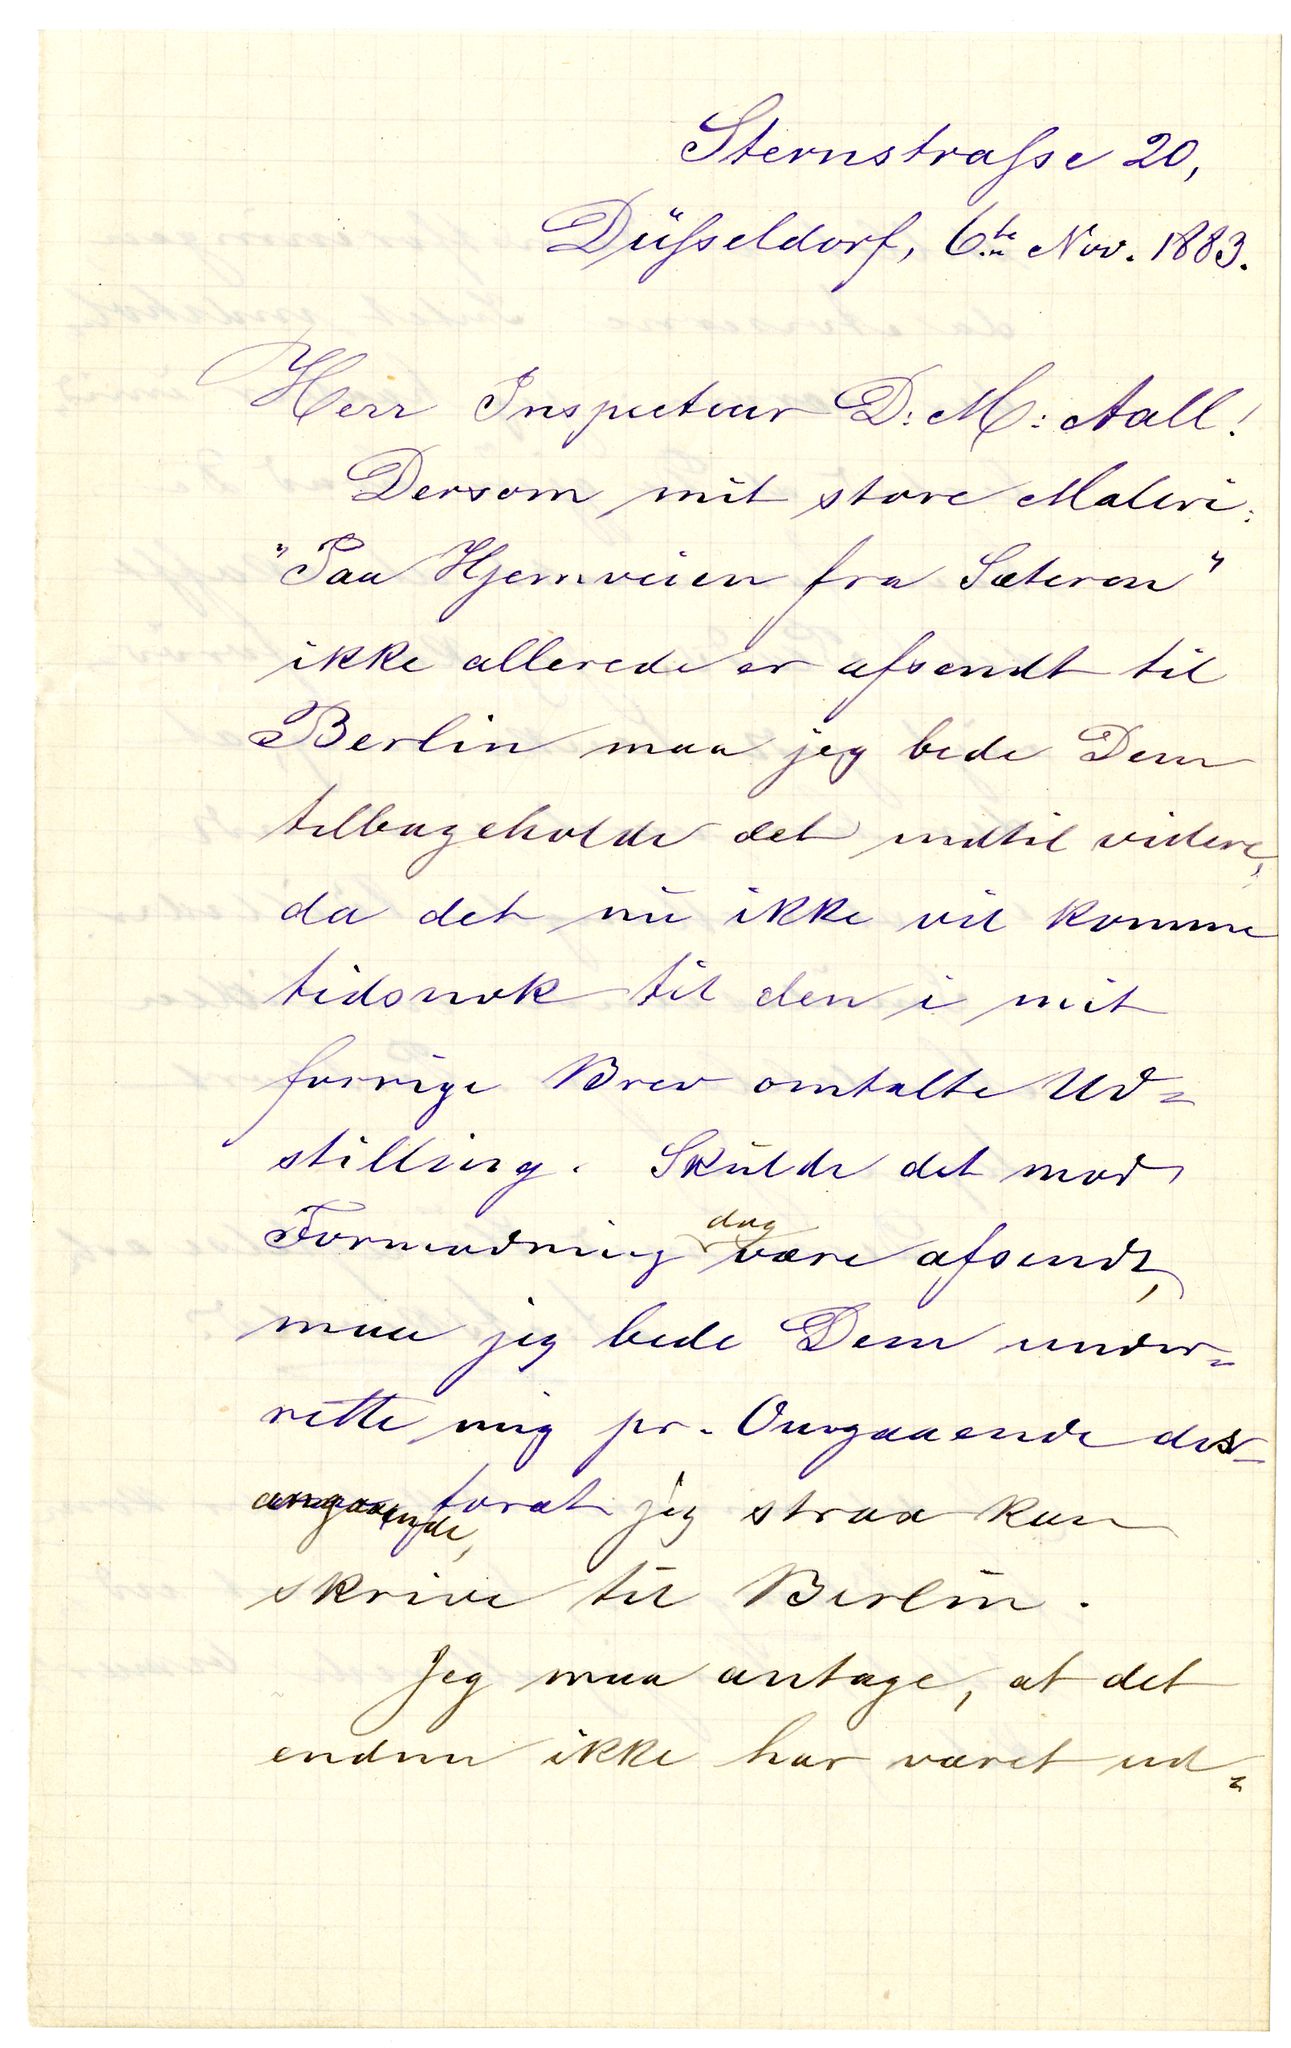 Sternstraße 20,
Düsseldorf, 6te Nov. 1883.
Herr Inspecteur D: M: Aall!
Dersom mit store Maleri:
"Paa Hjemveien fra Sæteren"
ikke allerede er afsendt til
Berlin maa jeg bede Dem
tilbageholde det indtil videre,
da det nu ikke vil komme
tidsnok til den i mit
forrige Brev omtalte Ud=
stilling. Skulde det mod
Formodning dog være afsendt,
maa jeg bede Dem under=
rette mig pr. Omgaaende des=
angaaende, forat jeg strax kan
skrive til Berlin.
Jeg maa antage, at det
endnu ikke har været ud=